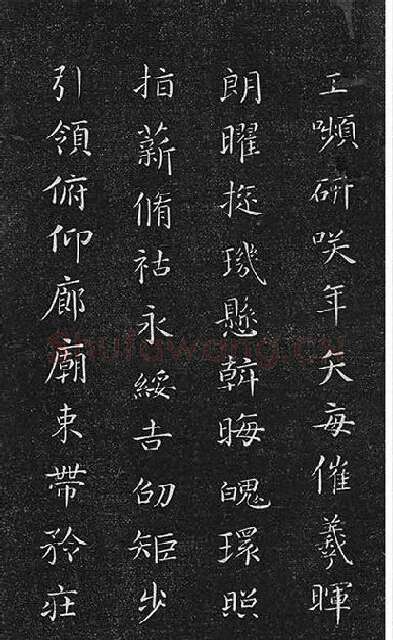 工嚬研咲年矢每催羲暉
朗曜琁璣懸斡晦魄環照
指薪脩祜永綏吉劭矩步
引領俯仰廊廟束帶矜莊
shufawang.cn